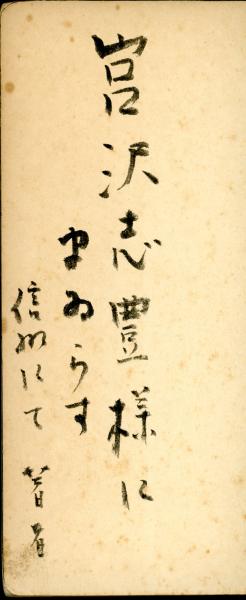 宮沢志豊様に
まゐらす
信州にて 著者